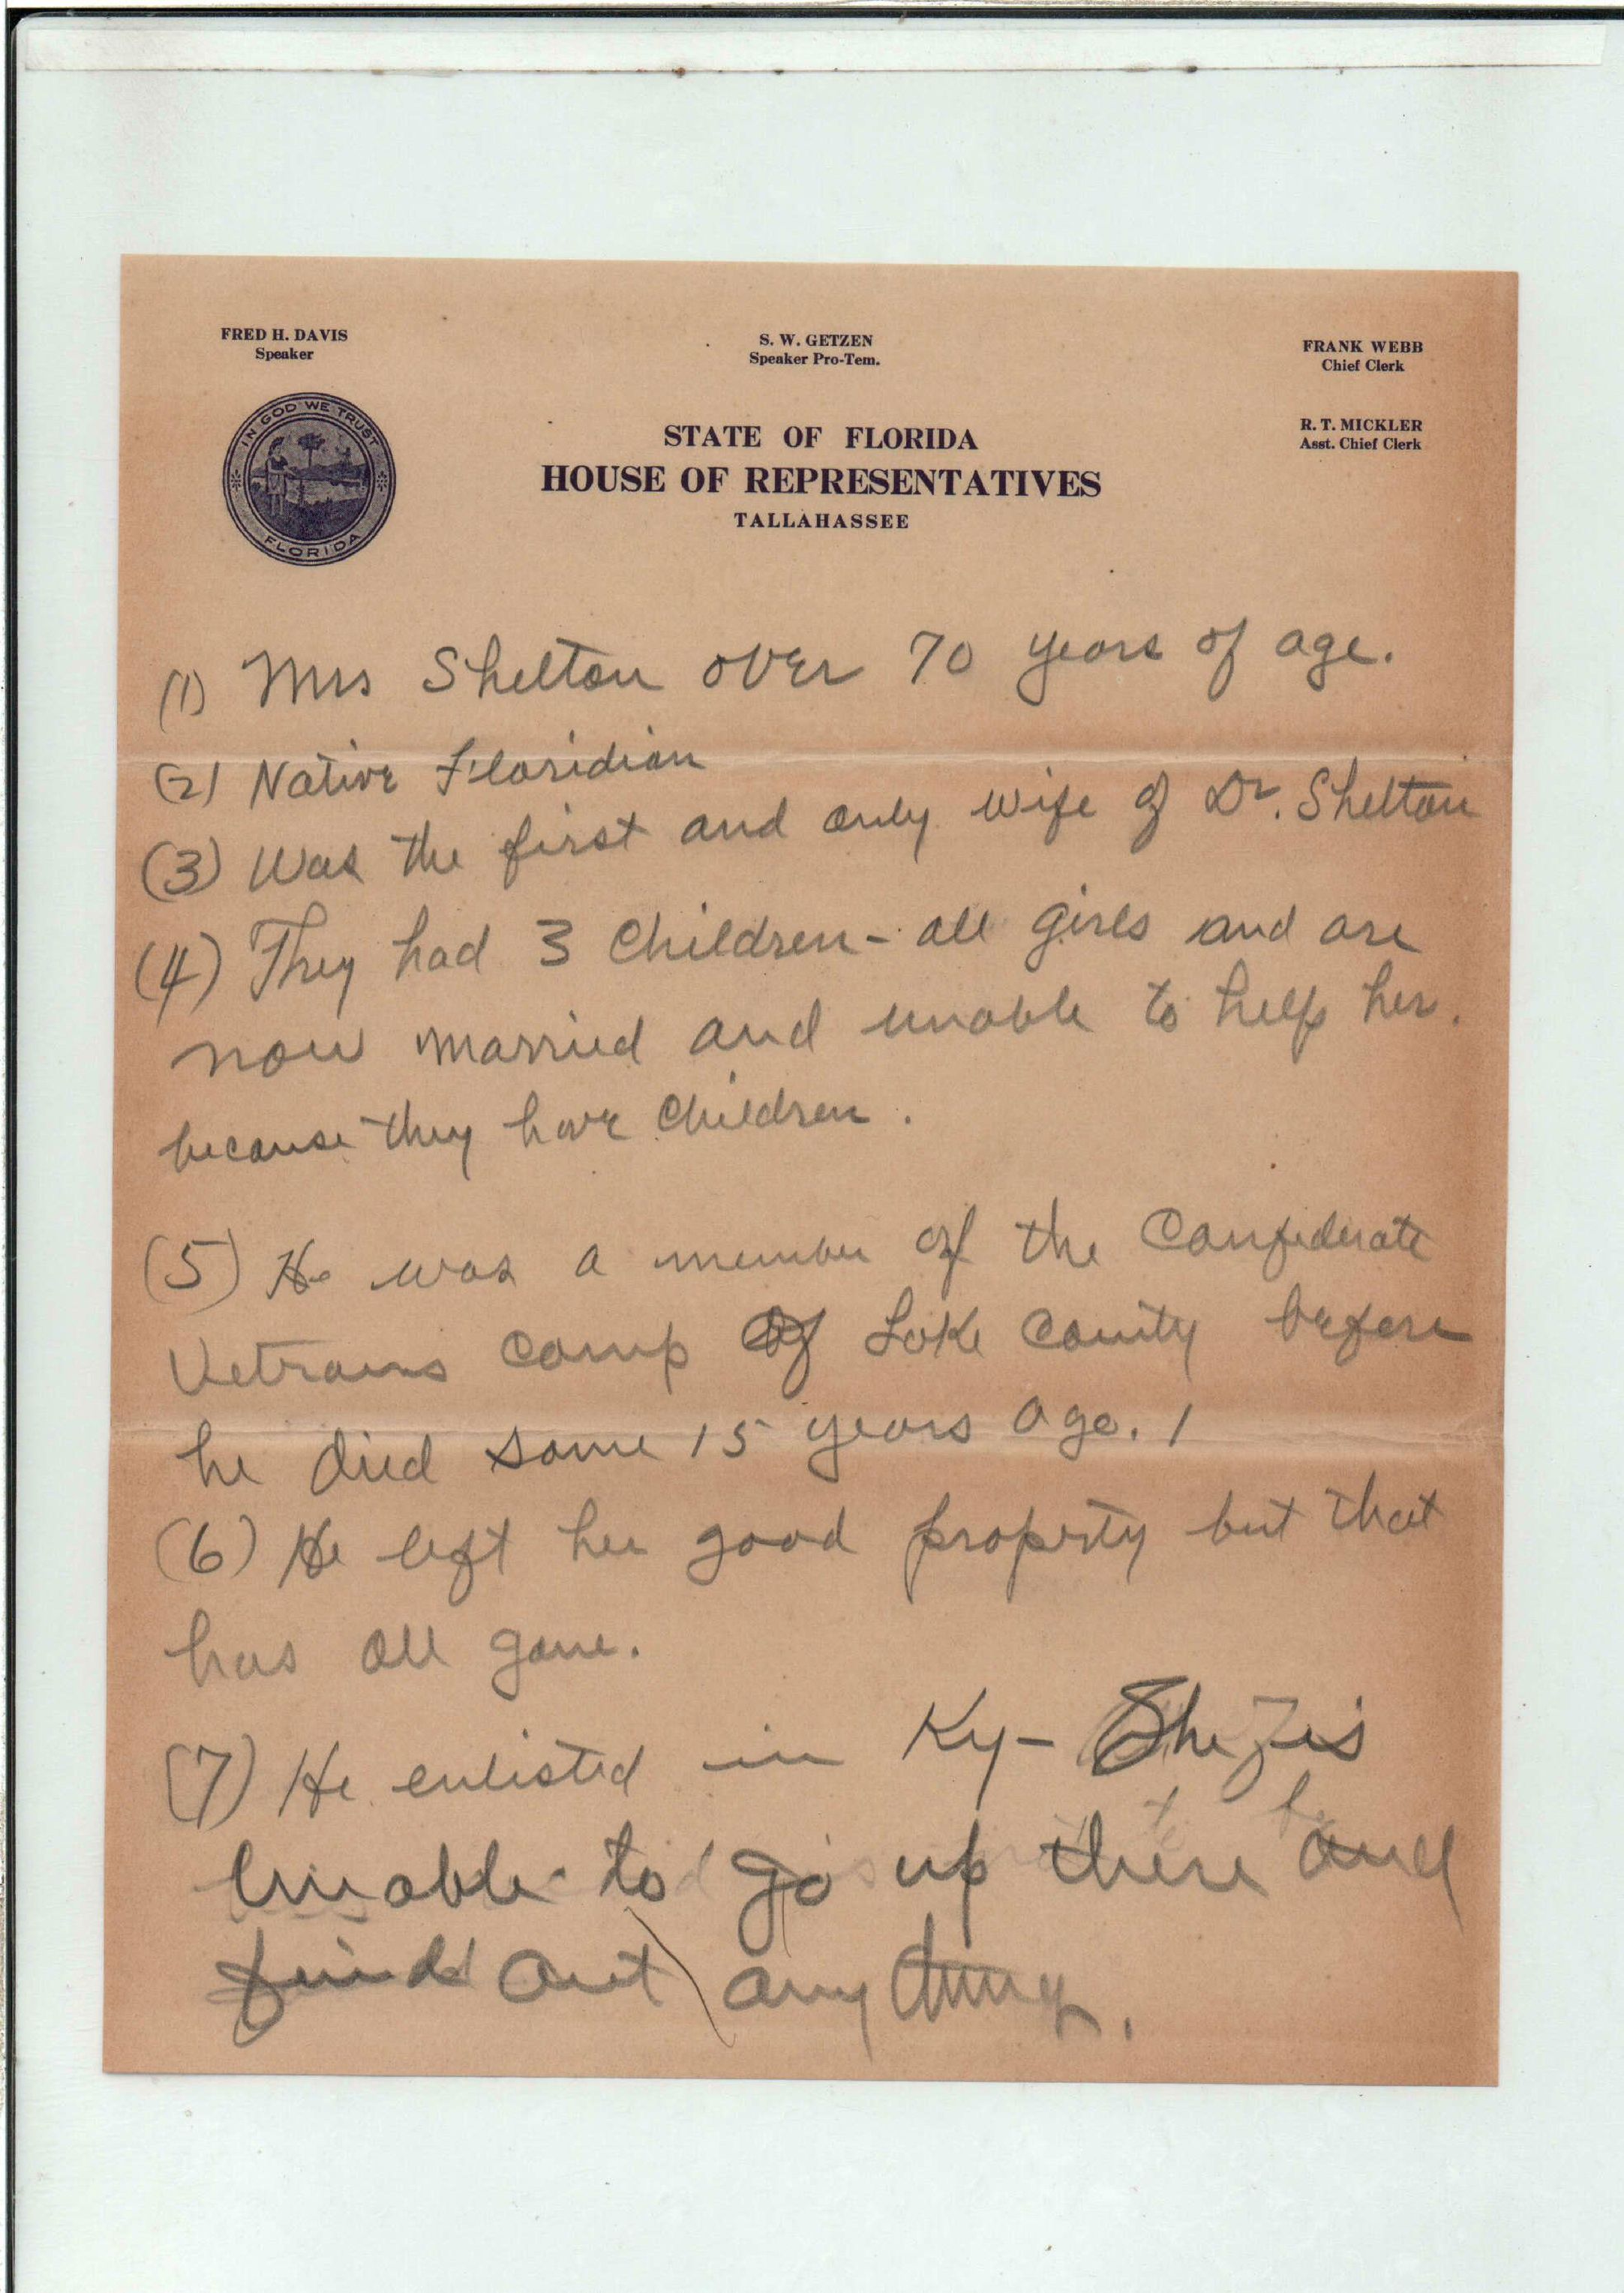 FRED H. DAVIS
Speaker
S. W. GETZEN
Speaker Pro-Tem.
FRANK WEBB
Chief Clerk
R. T. MICKLER
Asst. Chief Clerk
IN GOD WE TRUST
FLORIDA
STATE OF FLORIDA
HOUSE OF REPRESENTATIVES
TALLAHASSEE
(1) Mrs Shelton over 70 years of age.
(2) Native Floridian
(3) Was the first and only wife of Dr. Shelton
(4) They had 3 Children - all girls and are
now married and unable to help her.
because they have Children.
(5) He was a member of the Confederate
Vetrans Camp of Lake County before
he died some 15 years ago.
(6) He left her good property but that
has all gone.
(7) He enlisted in Ky - She is
unable to go up there and
find out any thing.